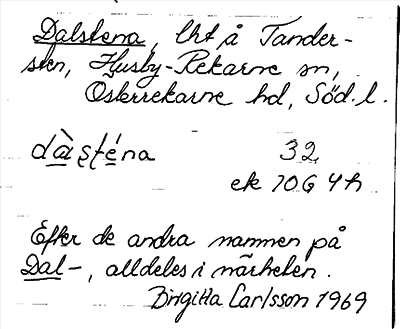 Dalstena, lht å Tander-
sten, Husby-Rekarne sn,
Österrekarne hd, Söd. l.
dàsténa 32
ek 10G 4h
Efter de andra namnen på
Dal-, alldeles i närheten.
Birgitta Carlsson 1969